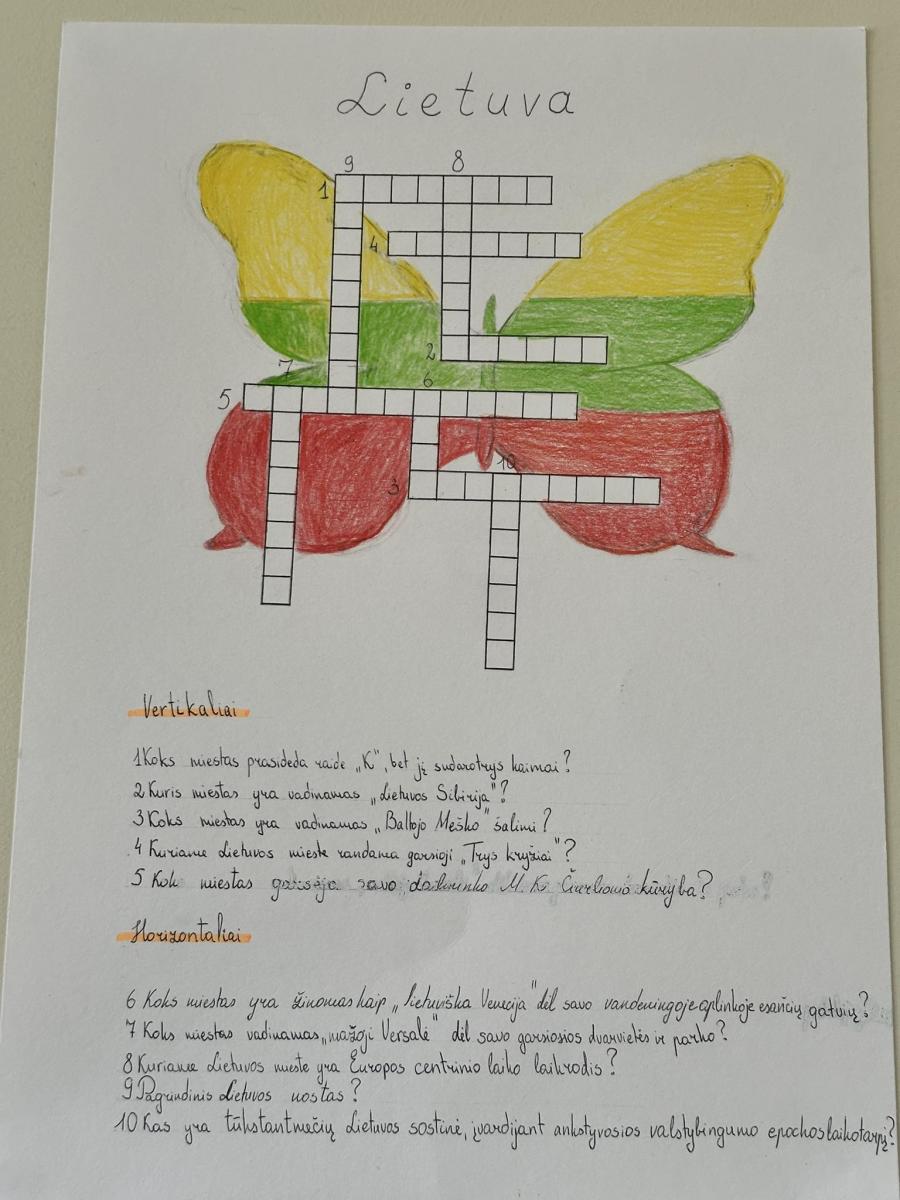 Lietuva
9 8
1
4
2
7
6
5
10
3
Vertikaliai
1 Koks miestas prasideda raide „K“, bet jį sudarotrys kaimai?
2 Kuris miestas yra vadinamas „Lietuvos Sibirija“?
3 Koks miestas yra vadinamas „Baltojo Meško“ šalimi?
4 Kuriame Lietuvos mieste randama garsioji „Trys kryžiai“?
5 Kok miestas garsėja savo M. K. Čiurlionio kūryba?
Horizontaliai
6 Koks miestas yra žinomas kaip „lietuviška Venecija“ dėl savo vandeningoje aplinkoje esančių gatvių?
7 Koks miestas vadinamas „mažoji Versalė“ dėl savo garsiosios dvarvietės ir parko?
8 Kuriame Lietuvos mieste yra Europos centrinio laiko laikrodis?
9 Pagrindinis Lietuvos uostas?
10 Kas yra tūkstantmečių Lietuvos sostinė, įvardijant ankstyvosios valstybingumo epochos laikotarpį?